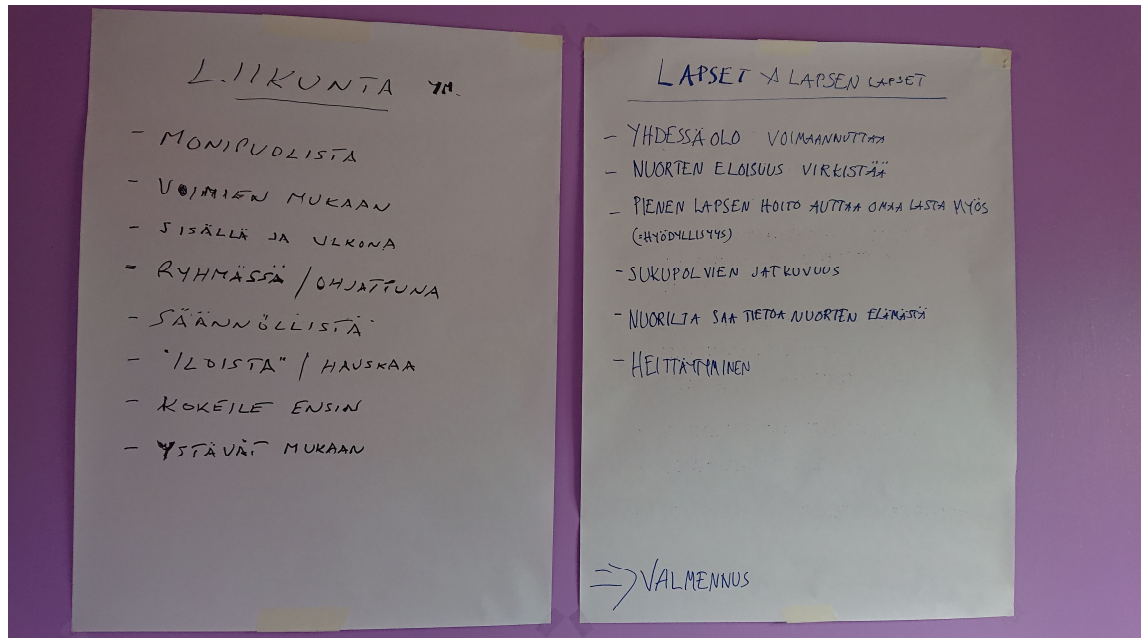 LIIKUNTA YM.
- MONIPUOLISTA
- VOIMIEN MUKAAN
- SISÄLLÄ JA ULKONA
- RYHMÄSSÄ / OHJATTUNA
- SÄÄNNÖLLISTÄ
- "ILOISTA" / HAUSKAA
- KOKEILE ENSIN
- YSTÄVÄT MUKAAN
LAPSET JA LAPSEN LAPSET
- YHDESSÄOLO VOIMAANNUTTAA
- NUORTEN ELOISUUS VIRKISTÄÄ
- PIENEN LAPSEN HOITO AUTTAA OMAA LASTA MYÖS
(=HYÖDYLLISYYS)
- SUKUPOLVIEN JATKUVUUS
- NUORILTA SAA TIETOA NUORTEN ELÄMÄSTÄ
- HEITTÄYTYMINEN
=> VALMENNUS